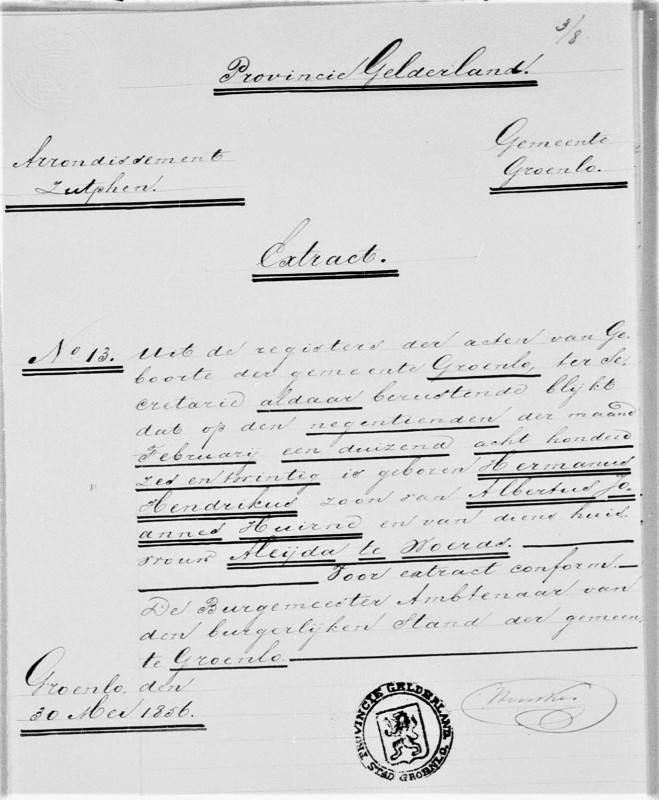 3/8
Provincie Gelderland.
Arrondissement
Zutphen.
Gemeente
Groenlo.
Extract.
No 13. Uit de registers der acten van Ge-
boorte der gemeente Groenlo, ter Se-
cretarie aldaar berustende blijkt
dat op den negentienden der maand
Februarij een duizend acht honderd
zes en twintig is geboren Hermanus
Hendrikus zoon van Albertus Jo-
annes Huirne en van diens huis-
vrouw Aleijda te Woerds.
Voor extract conform.
De Burgemeester Ambtenaar van
den burgerlijken Stand der gemeen-
te Groenlo
Groenlo, den
30 Mei 1856.
PROVINCIE GELDERLAND
STAD GROENLO.